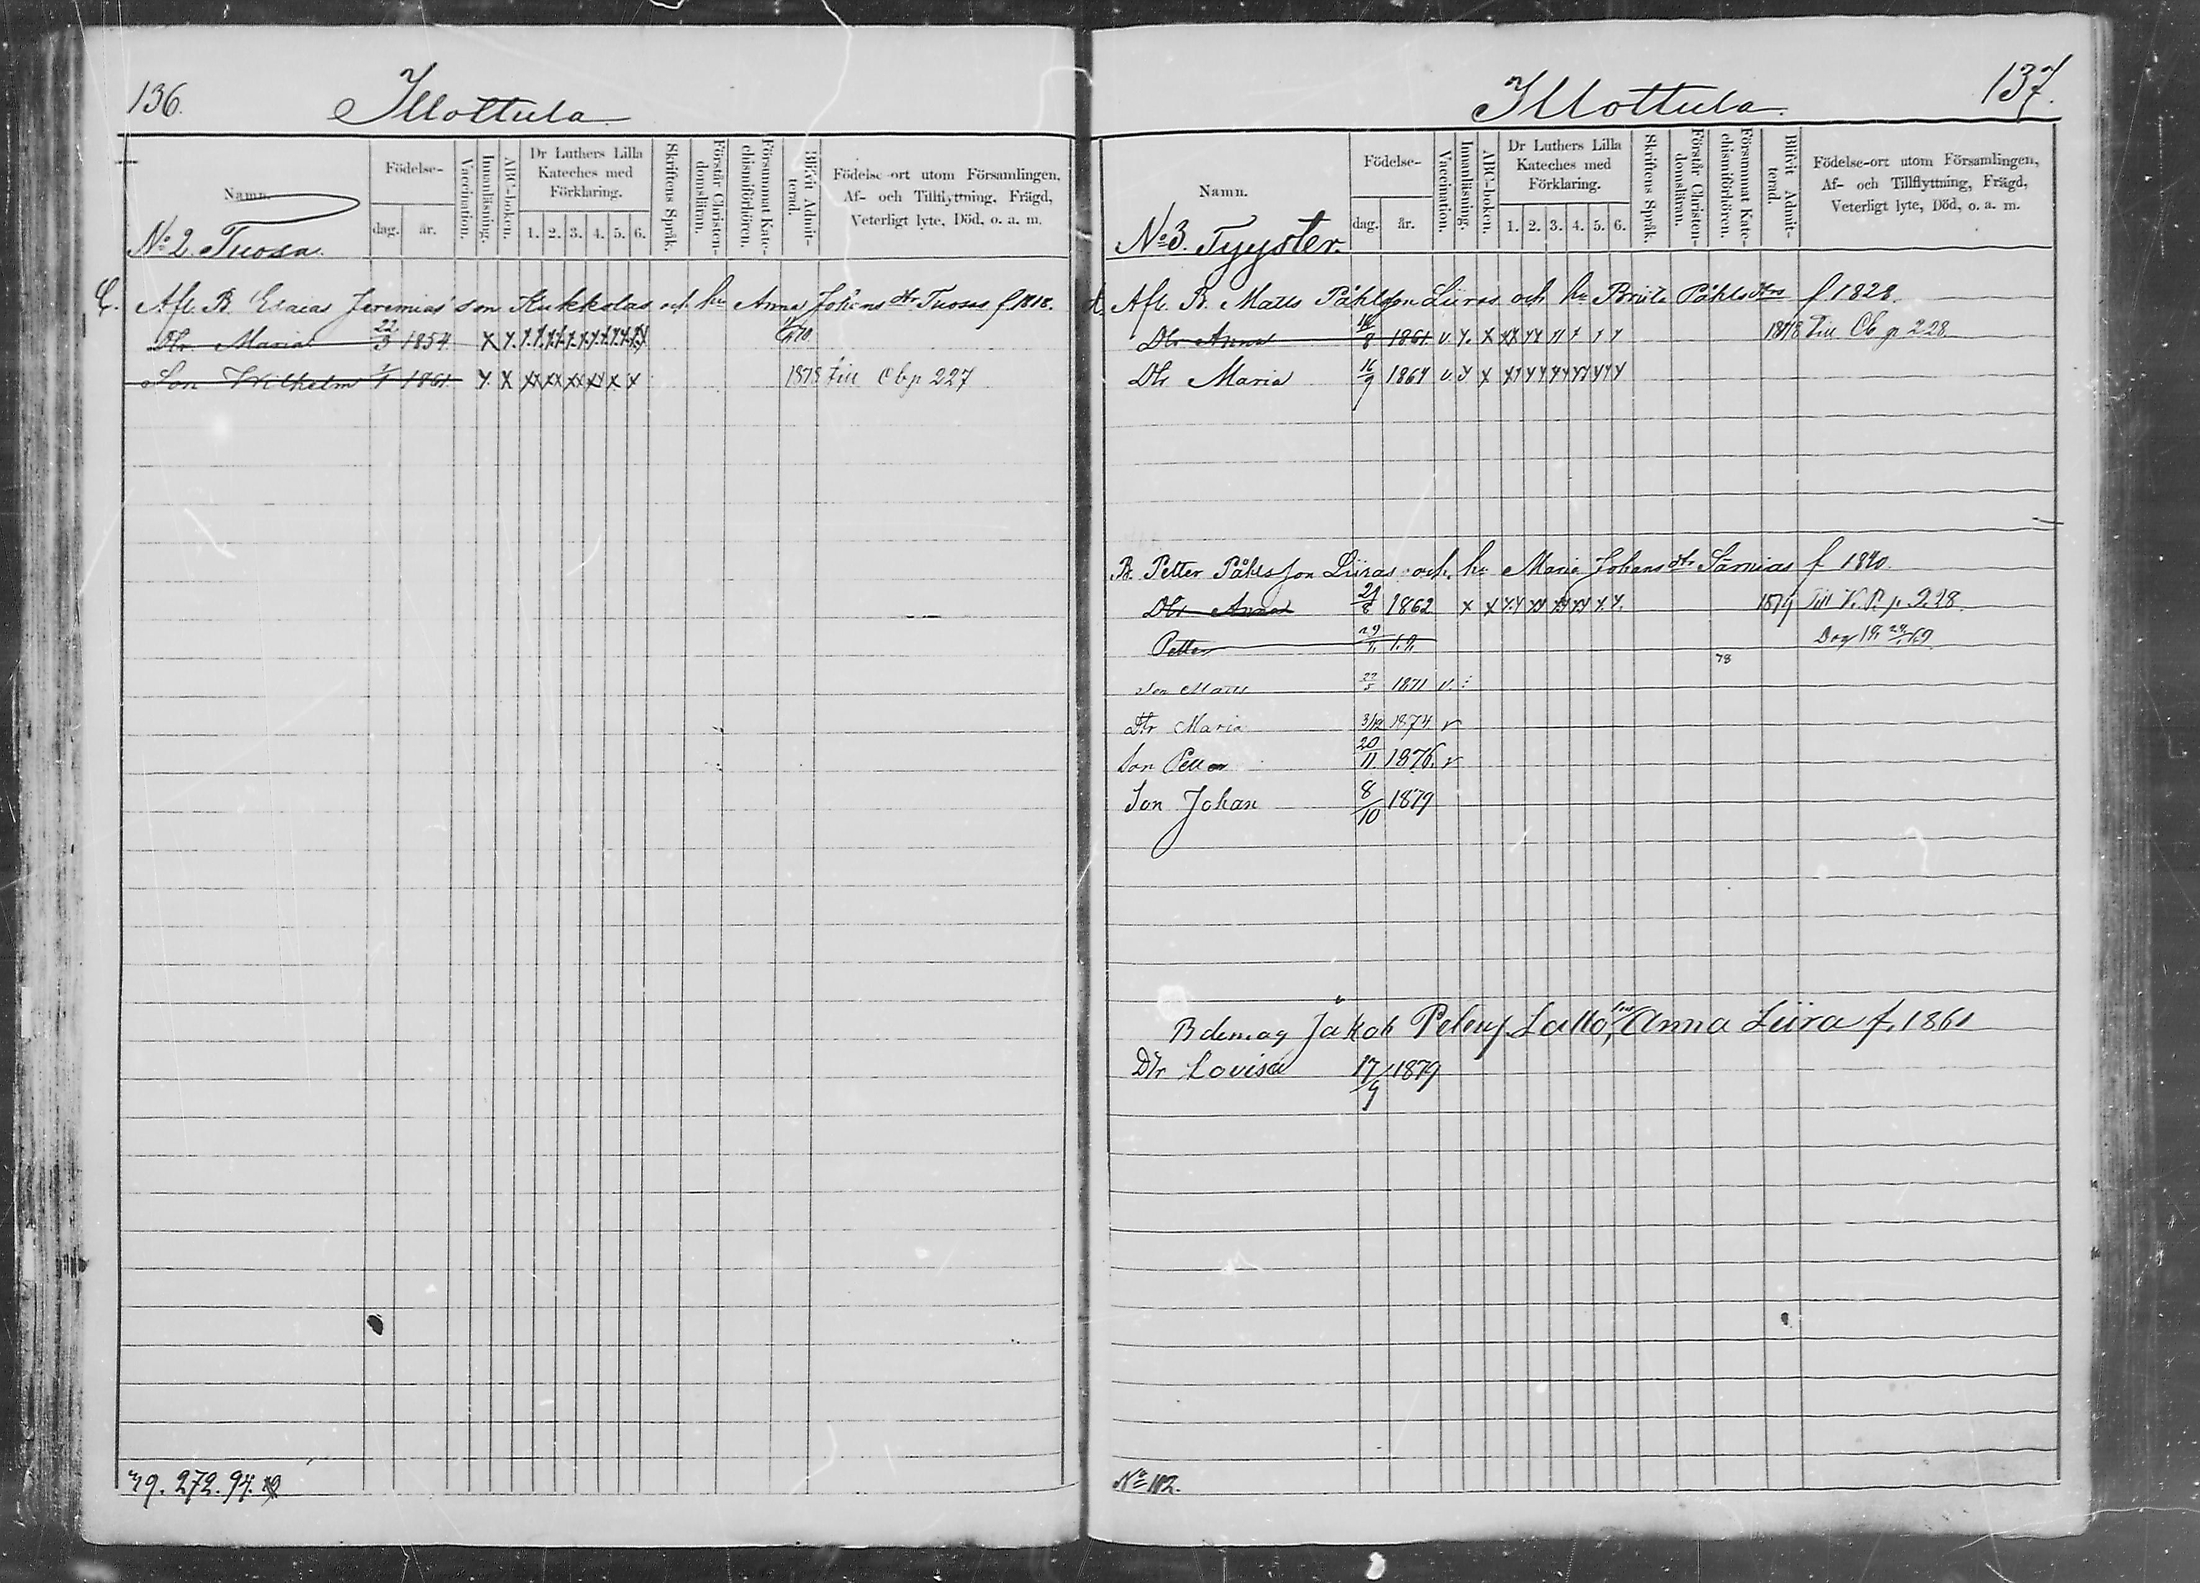 136.
Illottula
Namn.
Födelse-
dag.
år.
Vaccination.
Innanläsning.
ABC-boken.
Dr Luthers Lilla
Kateches med
Förklaring.
1. 2. 3. 4. 5. 6.
Skriftens Språk.
Förstår Christen-
domsläran.
Försummat Kate-
chismiförhören.
Blifvit Admit-
terad.
Födelse-ort utom Församlingen,
Af- och Tillflyttning, Frägd,
Veterligt lyte, Död, o. a. m.
No 2 Tuosa.
C. Afl. B. Esaias Jeremias son Kukkolas och hu Anna Johans dtr Tuosas f 1818.
Dtr Maria 22/3 1854
Son Wilhelm 1861 1878 till Cb p 227
N 9. 272. 94.
137.
Illottula
Namn.
Födelse-
dag.
år.
Vaccination.
Innanläsning.
ABC-boken.
Dr Luthers Lilla
Kateches med
Förklaring.
1. 2. 3. 4. 5. 6.
Skriftens Språk.
Förstår Christen-
domsläran.
Försummat Kate-
chismiförhören.
Blifvit Admit-
terad.
Födelse-ort utom Församlingen,
Af- och Tillflyttning, Frägd,
Veterligt lyte, Död, o. a. m.
No 3. Tyyster.
Afl. B. Matts Påhlsson Liiras och hu Brita Påhlsdtr f 1828.
Dtr Anna 1861 v. 1878 till Cb p 228
Dtr Maria 16/9 1864 v.
B. Petter Påhlsson Liiras och hu Maria Johans dtr Särniäs f 1840.
Dtr Anna 21/8 1862 1879 Till K. B. p. 228.
Petter 29/ Död 69
78
Son Matts 22/5 1871 v.
Dtr Maria 3/12 1874 v
Son Petter 20/11 1876. v
Son Johan 8/10 1879
B demag Jakob Petersf. Lallo, hu Anna Liira f. 1861
Dtr Lovisa 17/9 1879
No 112.